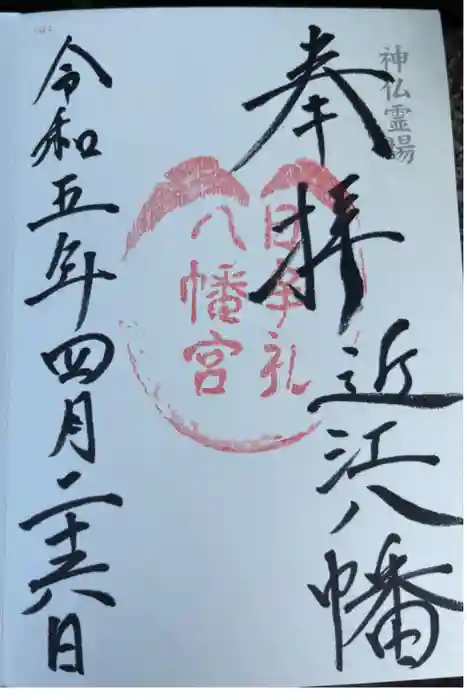 神仏霊場
奉拝
近江八幡
日牟礼
八幡宮
令和五年四月二十六日